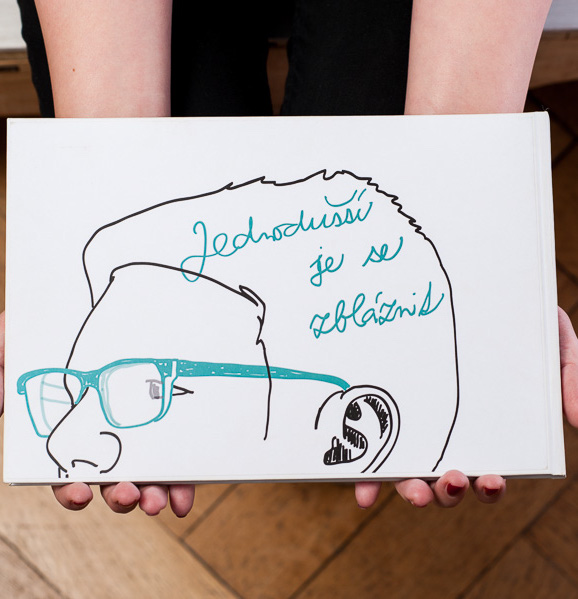 Jednodušší
je se
zbláznit